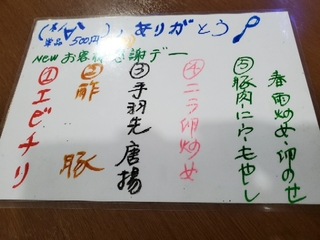 ありがとう
単品500円
NEWお客様感謝デー
①エビチリ
②酢豚
③手羽先唐揚
④ニラ卵炒め
⑤豚肉ニラ・もやし
春雨炒め・卵のせ